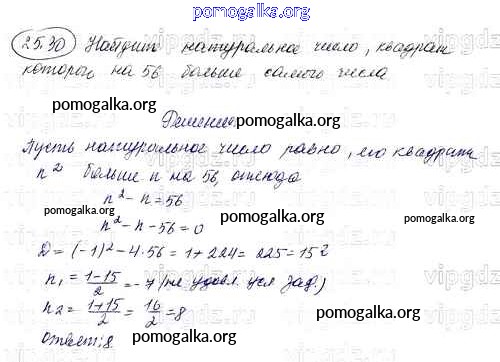 pomogalka.org
25.30 Найдите натуральное число, квадрат
которого на 56 больше самого числа
pomogalka.org pomogalka.org
Решение.
Пусть натуральное число равно, его квадрат
n² больше n на 56, отсюда
n² - n = 56
pomogalka.org pomogalka.org
n² - n - 56 = 0
D = (-1)² - 4·56 = 1 + 224 = 225 = 15²
n₁ = (1-15)/2 = -7 (не удовл. усл зад.)
n₂ = (1+15)/2 = 16/2 = 8
pomogalka.org
Ответ: 8
pomogalka.org
vipgdz